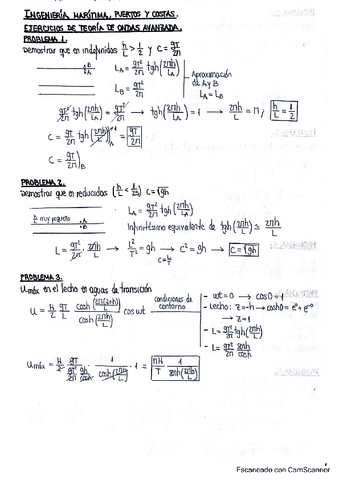 INGENIERÍA MARÍTIMA, PUERTOS Y COSTAS.
EJERCICIOS DE TEORÍA DE ONDAS AVANZADA.
PROBLEMA 1.
Demostrar que en indefinidas h/L > 1/2 y C = gT/2π
A
B
L_A = gT²/2π tgh(2πh/L_A)
L_B = gT²/2π
Aproximación de A y B
gT²/2π tgh(2πh/L_A) = gT²/2π → tgh(2πh/L_A) = 1 → 2πh/L = π; h/L = 1/2
C = gT/2π tgh(2πh/L) = gT/2π
C = gT/2π)_B
PROBLEMA 2.
Demostrar que en reducidas (h/L < ) C = √gh
h muy pequeño
L_A = gT²/2π tgh(2πh/L)
Infinitésimo equivalente de tgh(2πh/L) ≃ 2πh/L
L = gT²/2π · 2πh/L → L²/T² = gh → C² = gh → C = √gh
PROBLEMA 3.
Umáx en el lecho en aguas de transición
U = H/2 gT/L cosh(2π(z+h)/L)/cosh(2πh/L) cos wt
condiciones de contorno
- wt = 0 → cos 0 = 1
- Lecho: z = -h → cosh 0 =
→ 1
- L = gT²/2π tgh(2πh/L)
- L = gT²/2π senh/cosh
Escaneado con CamScanner